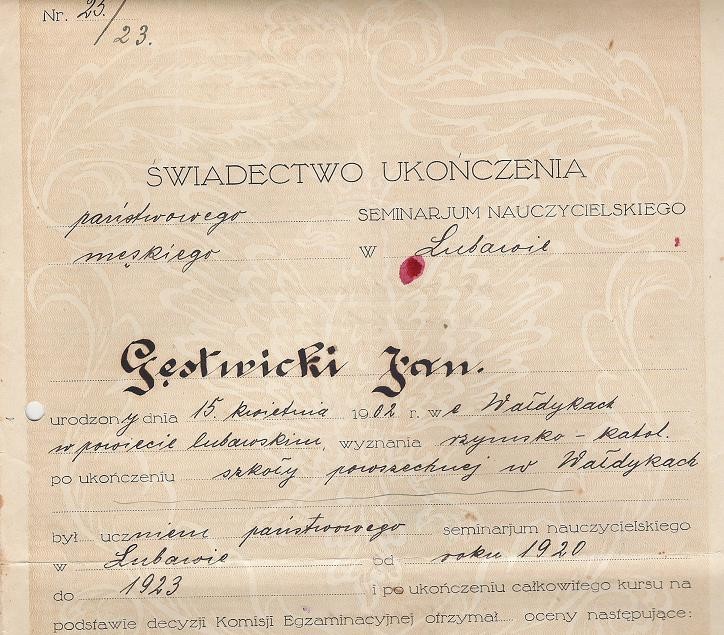 Nr. 25/23.
ŚWIADECTWO UKOŃCZENIA
państwowego SEMINARJUM NAUCZYCIELSKIEGO
męskiego W Lubawie
Gęstwicki Jan.
urodzony dnia 15. kwietnia 1902 r. w e Wałdykach
w powiecie lubawskim, wyznania rzymsko-katol.
po ukończeniu szkoły powszechnej w Wałdykach
był uczniem państwowego seminarjum nauczycielskiego
w Lubawie od roku 1920
do 1923 i po ukończeniu całkowitego kursu na
podstawie decyzji Komisji Egzaminacyjnej otrzymał.... oceny następujące: